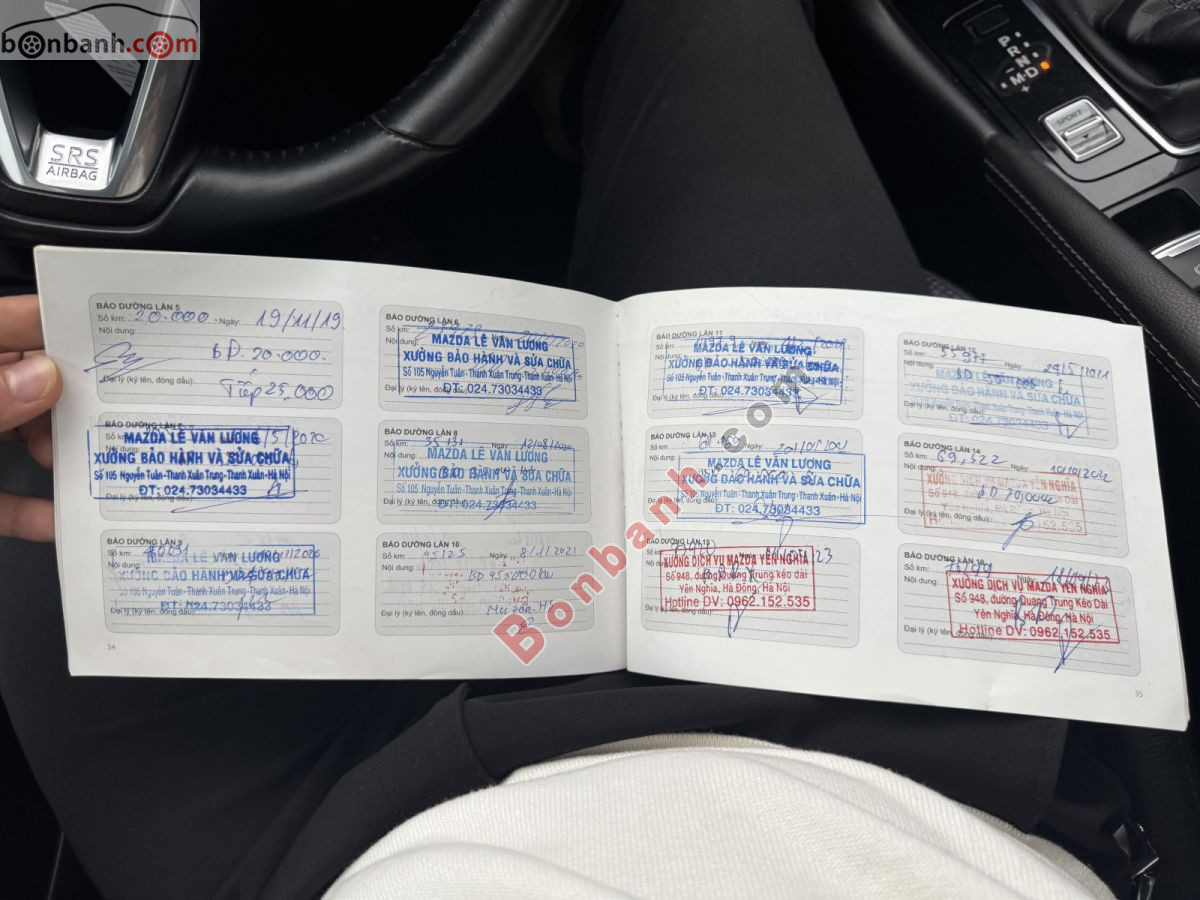 bonbanh.com
SRS
AIRBAG
P
R
N
M-D
+
SPORT
BẢO DƯỠNG LẦN 5
Số km: 20.000 Ngày: 19/11/19.
Nội dung:
BD. 20.000.
Đại lý (ký tên, đóng dấu): Tiếp 25.000
BẢO DƯỠNG LẦN 6
Số km:
MAZDA LÊ VĂN LƯƠNG
XƯỞNG BẢO HÀNH VÀ SỬA CHỮA
Số 105 Nguyễn Tuân-Thanh Xuân Trung-Thanh Xuân-Hà Nội
Đại lý (ký tên, đóng dấu):
ĐT: 024.73034433
MAZDA LÊ VĂN LƯƠNG /5/2020
XƯỞNG BẢO HÀNH VÀ SỬA CHỮA
Số 105 Nguyễn Tuân-Thanh Xuân Trung-Thanh Xuân-Hà Nội
ĐT: 024.73034433
BẢO DƯỠNG LẦN 8
Số km: 35131 Ngày: 12/08/2020
Nội dung:
MAZDA LÊ VĂN LƯƠNG
XƯỞNG BẢO HÀNH VÀ SỬA CHỮA
Số 105 Nguyễn Tuân-Thanh Xuân Trung-Thanh Xuân-Hà Nội
Đại lý (ký tên, đóng dấu):
ĐT: 024.73034433
BẢO DƯỠNG LẦN 9
Số km:
Nội dung:
MAZDA LÊ VĂN LƯƠNG
XƯỞNG BẢO HÀNH VÀ SỬA CHỮA
Đại lý (ký tên, đóng dấu):
ĐT: 024.73034433
BẢO DƯỠNG LẦN 10
Số km: 45125 Ngày: 8/1/2021
Nội dung:
BD 45.000 km
Đại lý (ký tên, đóng dấu): Mazda
34
BẢO DƯỠNG LẦN 11
Số km:
Nội dung:
MAZDA LÊ VĂN LƯƠNG
XƯỞNG BẢO HÀNH VÀ SỬA CHỮA
Số 105 Nguyễn Tuân-Thanh Xuân Trung-Thanh Xuân-Hà Nội
Đại lý (ký tên, đóng dấu):
ĐT: 024.73034433
BẢO DƯỠNG LẦN 12
Số km: 55977 Ngày: 24/5/2021
Nội dung:
MAZDA LÊ VĂN LƯƠNG
XƯỞNG BẢO HÀNH VÀ SỬA CHỮA
Số 105 Nguyễn Tuân-Thanh Xuân Trung-Thanh Xuân-Hà Nội
Đại lý (ký tên, đóng dấu):
ĐT: 024.73034433
BẢO DƯỠNG LẦN 13
Số km:
Nội dung:
MAZDA LÊ VĂN LƯƠNG
XƯỞNG BẢO HÀNH VÀ SỬA CHỮA
Số 105 Nguyễn Tuân-Thanh Xuân Trung-Thanh Xuân-Hà Nội
Đại lý (ký tên, đóng dấu):
ĐT: 024.73034433
BẢO DƯỠNG LẦN 14
Số km: 69,322 Ngày: 10/10/2022
Nội dung:
XƯỞNG DỊCH VỤ MAZDA YÊN NGHĨA
Số 948, đường Quang Trung kéo Dài
BD 70.000
Yên Nghĩa, Hà Đông, Hà Nội
Đại lý (ký tên, đóng dấu):
Hotline DV: 0962.152.535
BẢO DƯỠNG LẦN 15
XƯỞNG DỊCH VỤ MAZDA YÊN NGHĨA
Số 948, đường Quang Trung kéo dài
Yên Nghĩa, Hà Đông, Hà Nội
Hotline DV: 0962.152.535
BẢO DƯỠNG LẦN 16
Số km:
Nội dung:
XƯỞNG DỊCH VỤ MAZDA YÊN NGHĨA
Số 948, đường Quang Trung Kéo Dài
Yên Nghĩa, Hà Đông, Hà Nội
Đại lý (ký tên, đóng dấu):
Hotline DV: 0962.152.535
35
Bonbanh.com